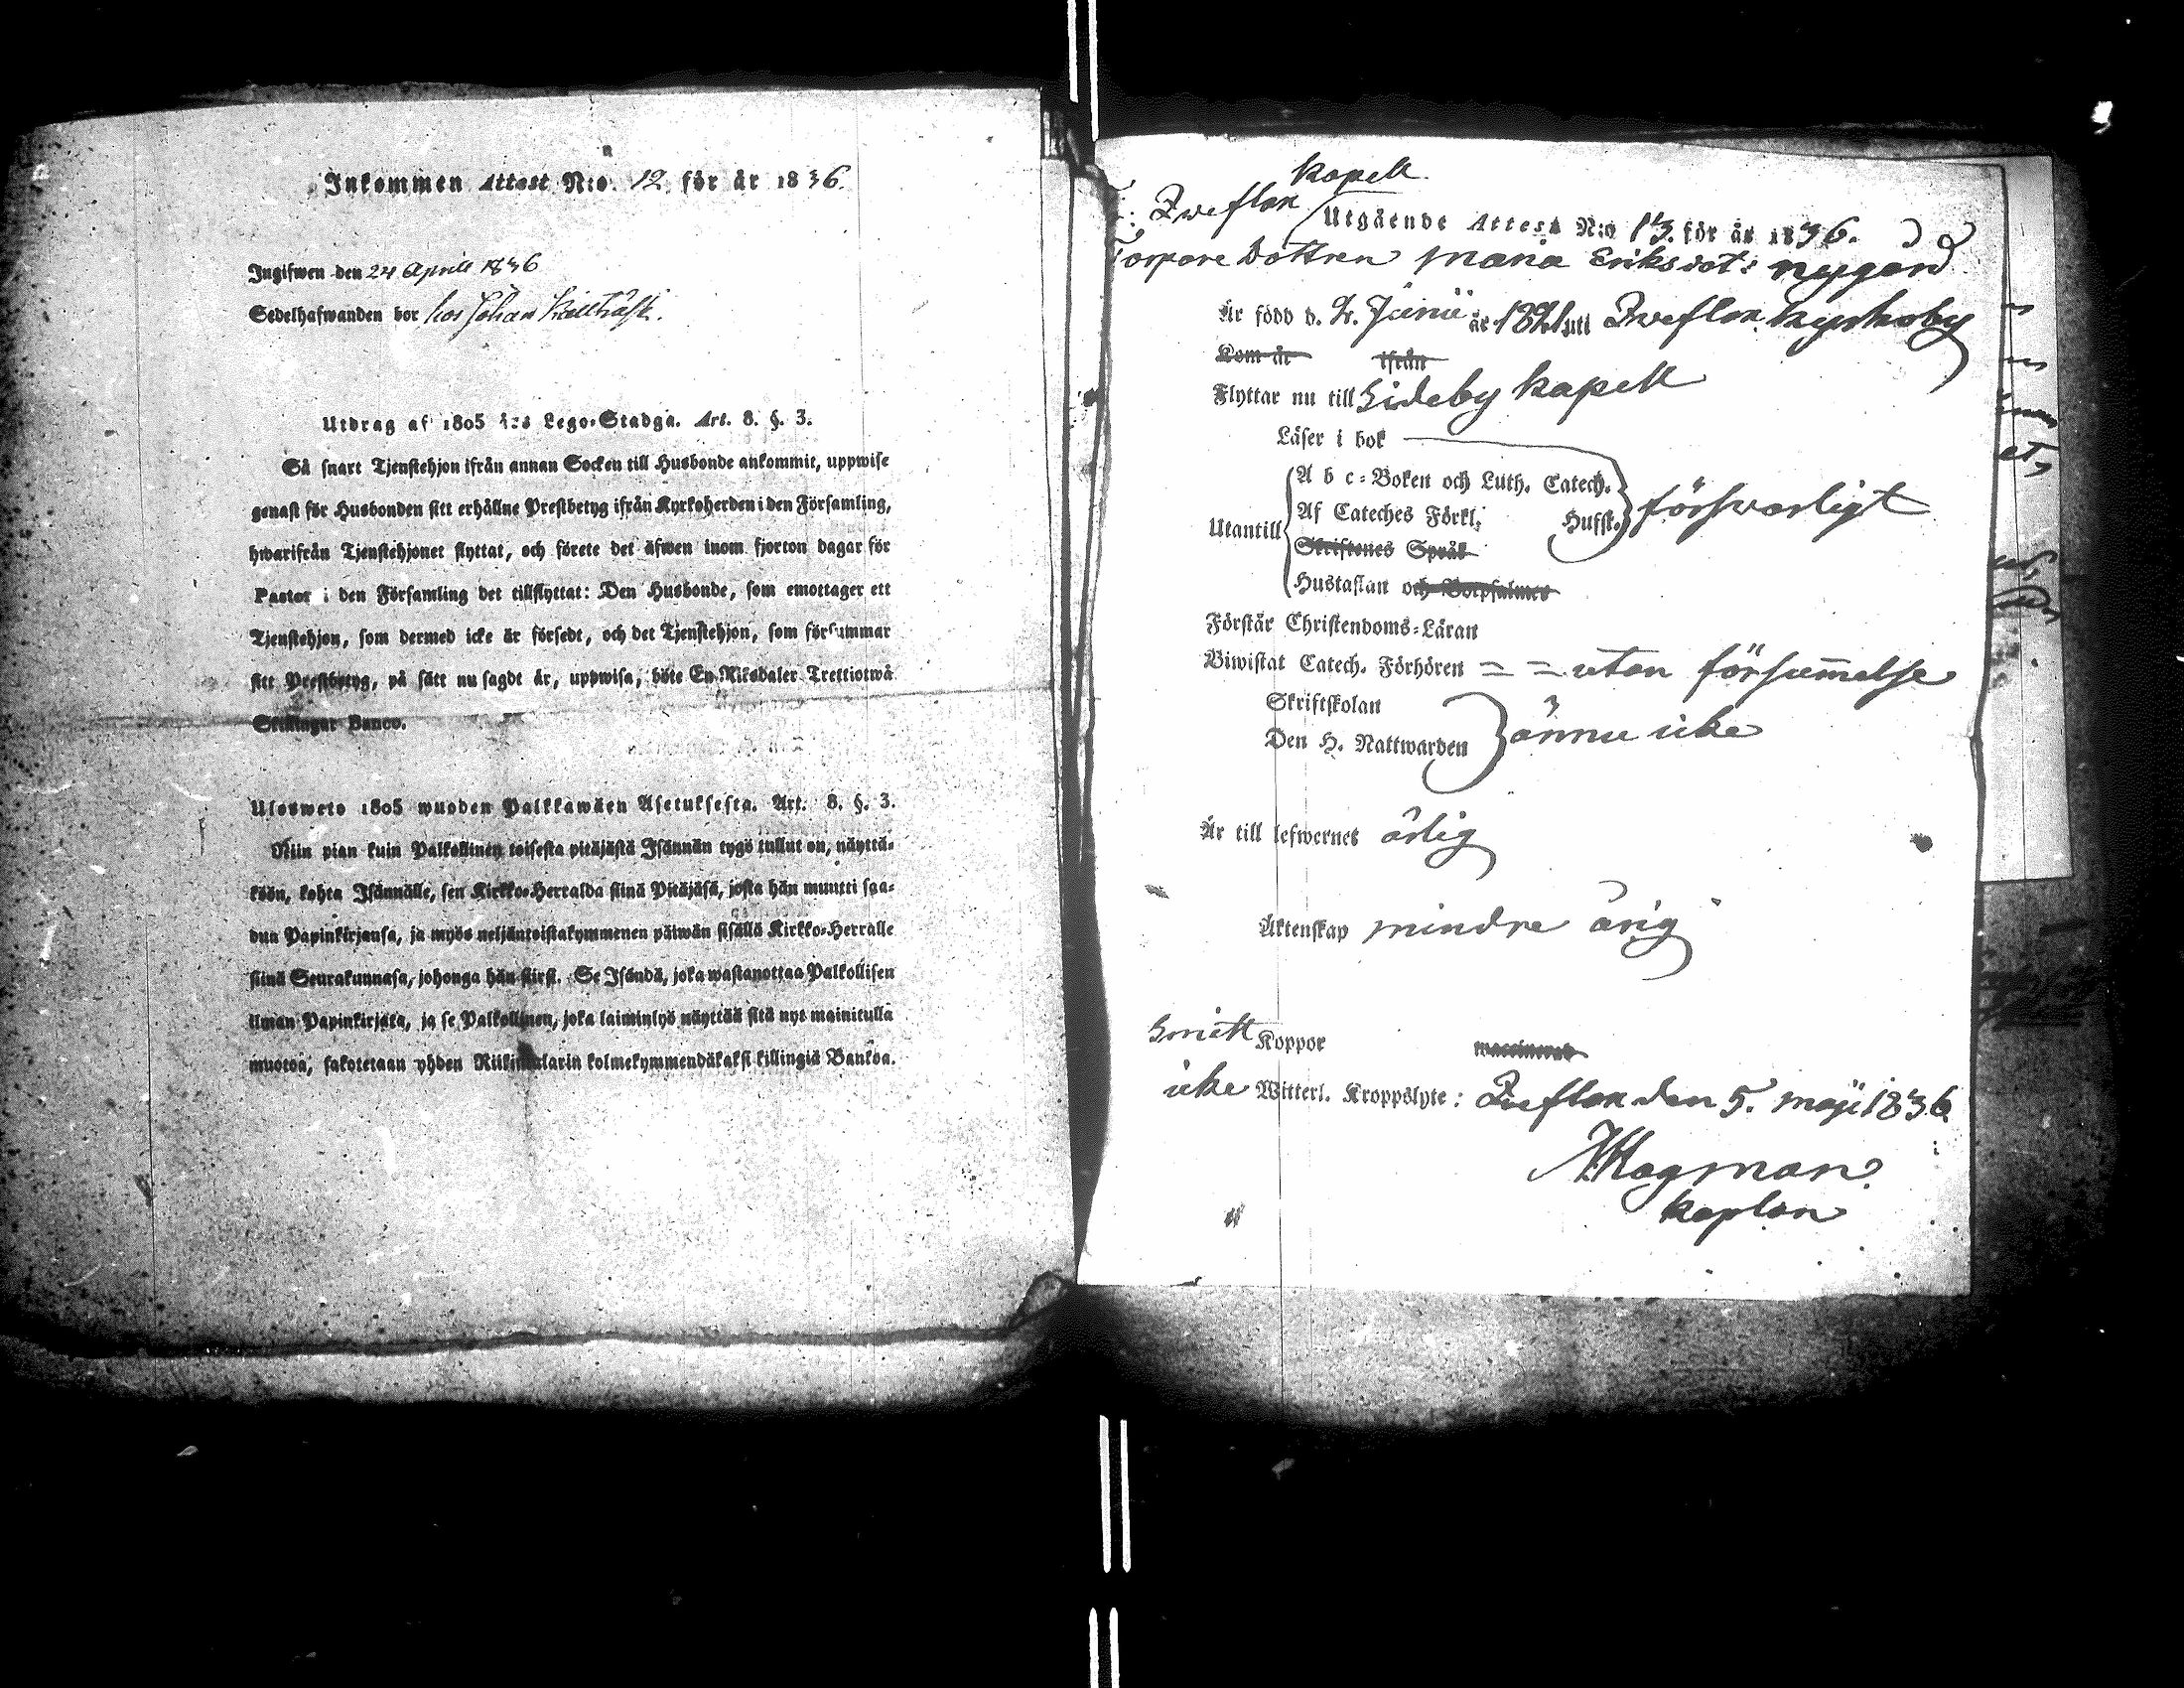 Inkommen Attest N:o 12 för år 1836.
Ingifwen den 24 April 1836
Sedelhafwanden bor hos Johan
Utdrag af 1805 års Lego-Stadga. Art. 8. §. 3.
Så snart Tjenstehjon ifrån annan Socken till Husbonde ankommit, uppwise
genast för Husbonden sitt erhållne Prestbetyg ifrån Kyrkoherden i den Församling,
hwarifrån Tjenstehjonet flyttat, och förete det äfwen inom fjorton dagar för
Pastor i den Församling det tillflyttat: Den Husbonde, som emottager ett
Tjenstehjon, som dermed icke är försedt, och det Tjenstehjon, som försummar
sitt Prestbetyg, på sätt nu sagdt är, uppwisa, böte En Riksdaler Trettiotwå
Skillingar Banco.
Ulosweto 1805 wuoden Palkkawäen Asetuksesta. Art. 8. §. 3.
Niin pian kuin Palkollinen toisesta pitäjästä Isännän tygö tullut on, näyttä-
köön, kohta Isännälle, sen Kirkko-Herralda siinä Pitäjäsä, josta hän muutti saa-
dun Papinkirjansa, ja myös neljäntoistakymmenen päiwän sisällä Kirkko-Herralle
siinä Seurakunnasa, johonga hän siirsi. Se Isändä, joka wastanottaa Palkollisen
ilman Papinkirjata, ja se Palkollinen, joka laiminlyö näyttää sitä nyt mainitulla
muotoa, sakotetaan yhden Riikintalarin kolmekymmendäkaksi killingiä Bankoa.
kapell
Zweflax
Utgående Attest N:o 13. för år 1836.
Torpare Dottren Maria Eriksdot: nygård
Är född d. 2. Junii år 1821 uti Zweflax kyrkoby
Kom år ifrån
Flyttar nu till Sideby kapell
Läser i bok
A b c-Boken och Luth. Catech.
Utantill Af Cateches Förkl. Hufst. försvarligt
Skriftenes Språk
Hustaflan och Botpsalmer
Förstår Christendoms-Läran
Biwistat Catech. Förhören = = utan försumelse
Skriftskolan
Den H. Nattwarden ännu icke
Är till lefwernet ärlig
Äktenskap mindre årig
Koppor vaccinerad
icke Witterl. Kroppslyte: Zweflax den 5. Maji 1836
Hagman
kaplan